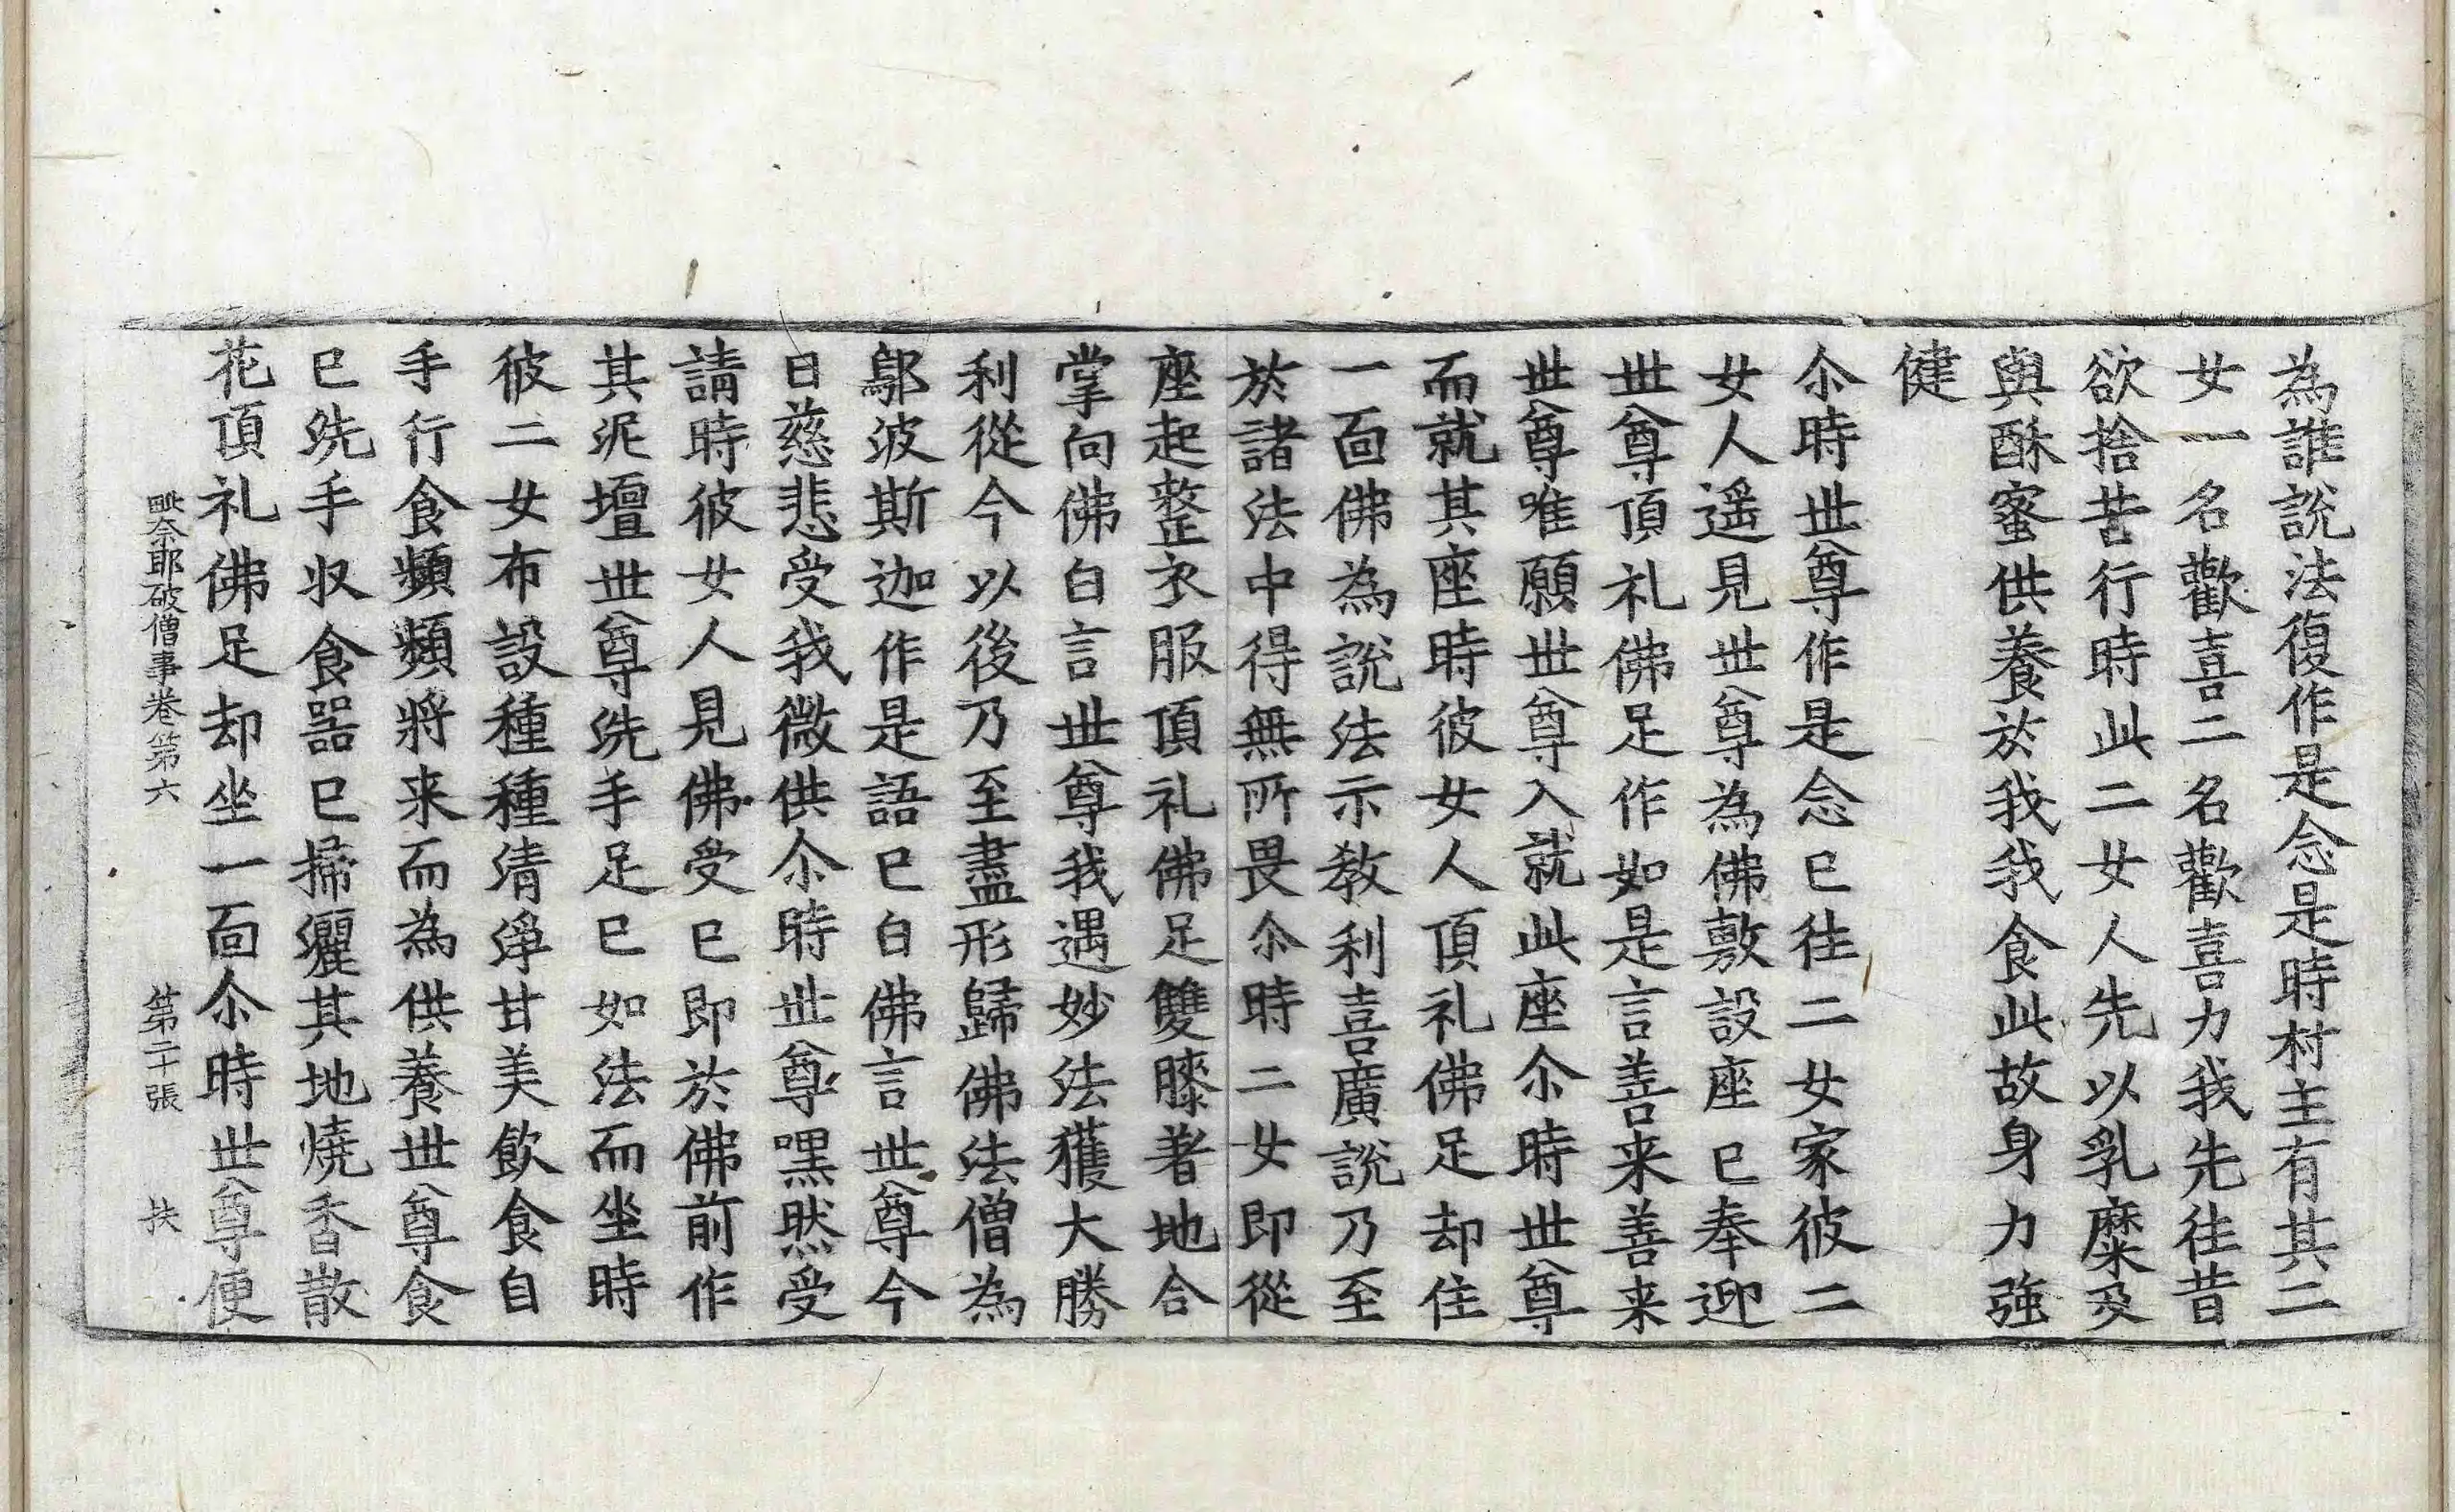 為誰說法復作是念是時村主有其二
女一名歡喜二名歡喜力我先往昔
欲捨苦行時此二女人先以乳糜及
與酥蜜供養於我我食此故身力強
健
尒時世尊作是念已往二女家彼二
女人遥見世尊為佛敷設座已奉迎
世尊頂礼佛足作如是言善来善来
世尊唯願世尊入就此座尒時世尊
而就其座時彼女人頂礼佛足却住
一面佛為說法示教利喜廣說乃至
於諸法中得無所畏尒時二女即從
座起整衣服頂礼佛足雙膝著地合
掌向佛白言世尊我遇妙法獲大勝
利從今以後乃至盡形歸佛法僧為
鄔波斯迦作是語已白佛言世尊今
日慈悲受我微供尒時世尊嘿然受
請時彼女人見佛受已即於佛前作
其泥壇世尊洗手足已如法而坐時
彼二女布設種種清淨甘美飲食自
手行食頻頻將来而為供養世尊食
已洗手収食器已掃灑其地燒香散
花頂礼佛足却坐一面尒時世尊便
毗奈耶破僧事卷第六 第二十張 扶